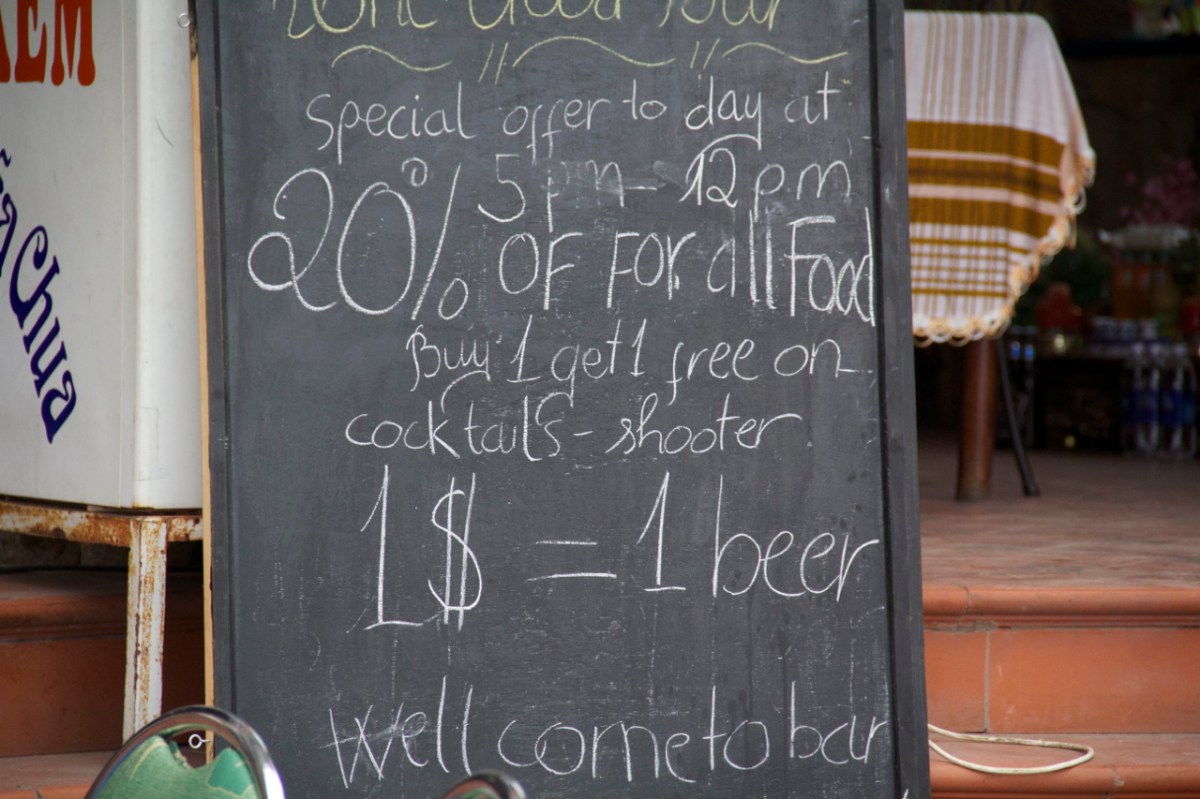 KEM
ữa Chua
special offer to day at
5 pm - 12 pm
20% OF FOR all Food
Buy 1 get 1 free on
cocktails - shooter
1 $ = 1 beer
Well come to bar